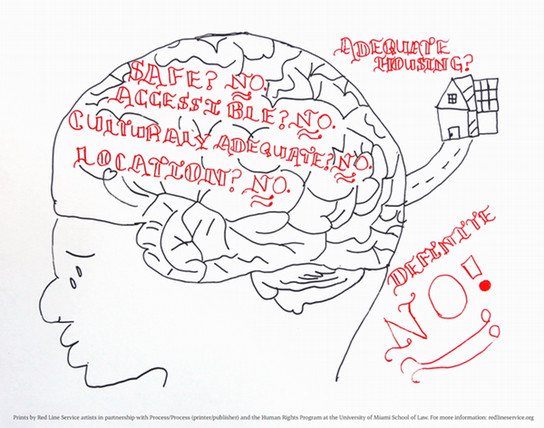 ADEQUATE
HOUSING?
SAFE? NO.
ACCESSIBLE? NO.
CULTURALY ADEQUATE? NO.
LOCATION? NO.
DEFINITE
NO!
Prints by Red Line Service artists in partnership with Process/Process (printer/publishes) and the Human Rights Program at the University of Miami School of Law. For more information: redlineservice.org